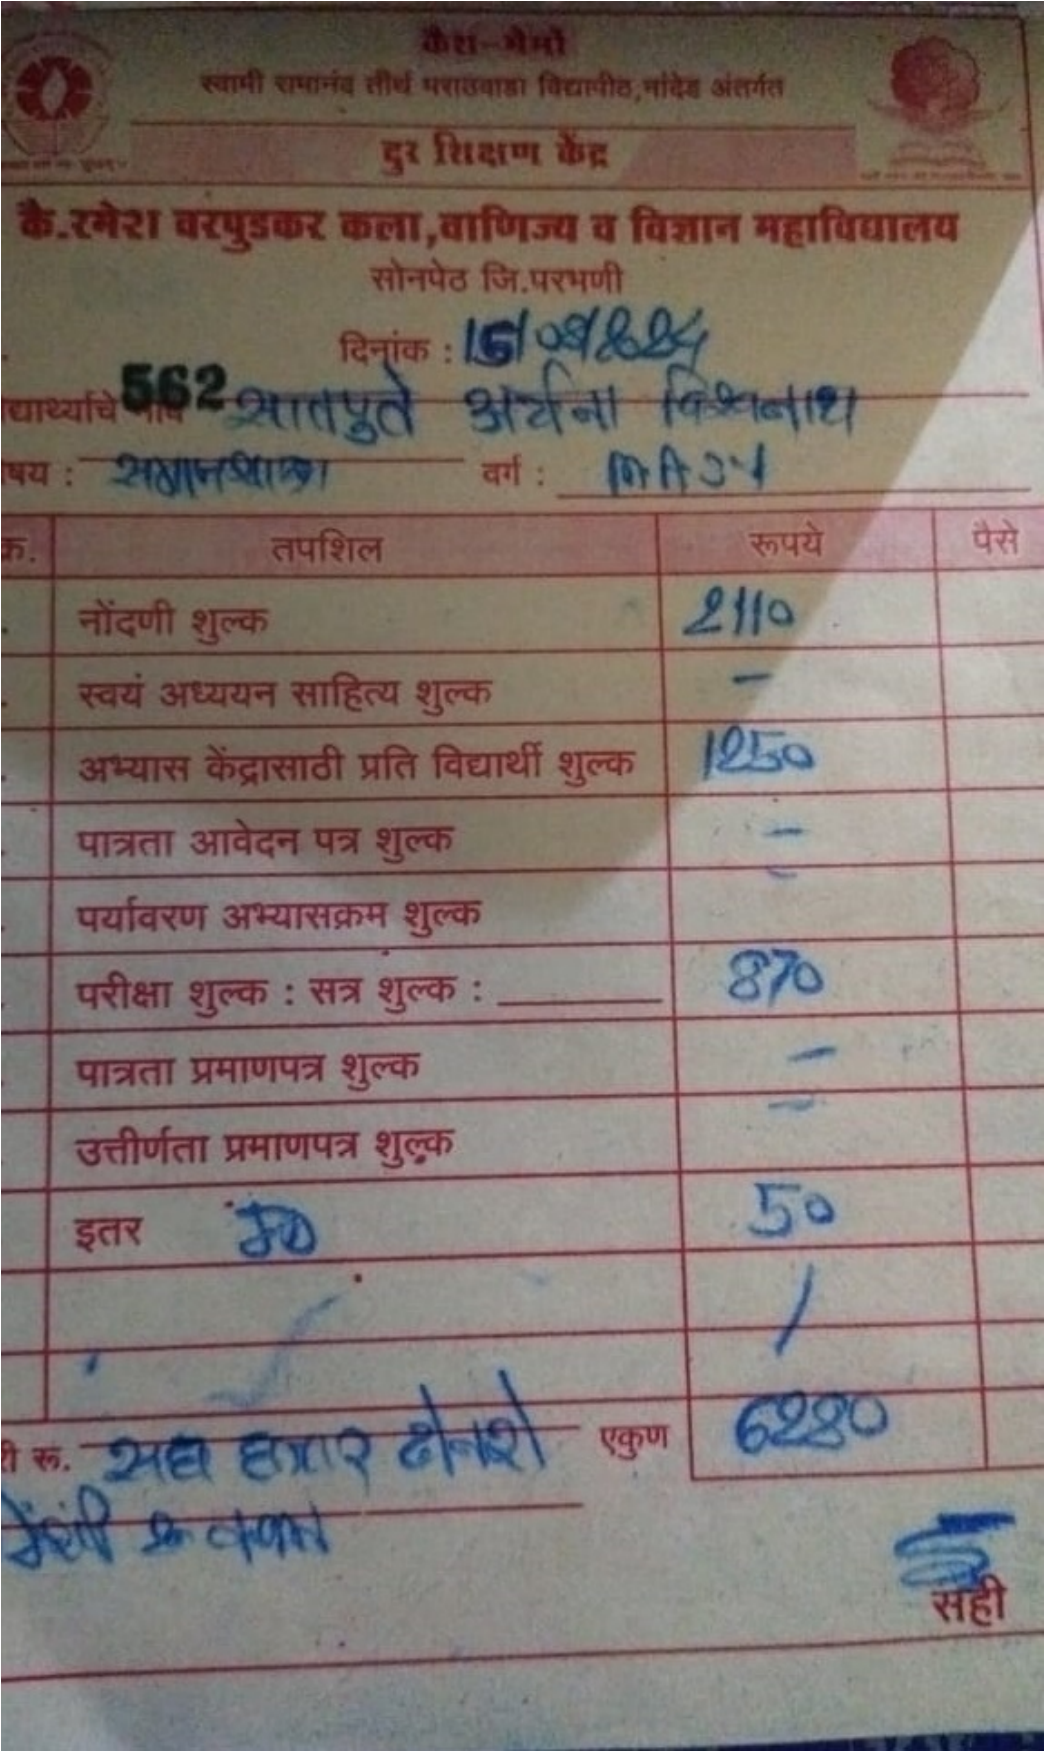 कॅश-मेमो
स्वामी रामानंद तीर्थ मराठवाडा विद्यापीठ,नांदेड अंतर्गत
दुर शिक्षण केंद्र
कै.रमेश वरपुडकर कला,वाणिज्य व विज्ञान महाविद्यालय
सोनपेठ जि.परभणी
दिनांक :
562 सातपुते अर्चना विश्वनाथ
षय : समाजशास्त्र वर्ग :
क्र. तपशिल रूपये पैसे
नोंदणी शुल्क 2110
स्वयं अध्ययन साहित्य शुल्क -
अभ्यास केंद्रासाठी प्रति विद्यार्थी शुल्क 1250
पात्रता आवेदन पत्र शुल्क -
पर्यावरण अभ्यासक्रम शुल्क -
परीक्षा शुल्क : सत्र शुल्क : 870
पात्रता प्रमाणपत्र शुल्क -
उत्तीर्णता प्रमाणपत्र शुल्क -
इतर 50
री रू. सहा हजार दोनशे एकुण 6280
सही